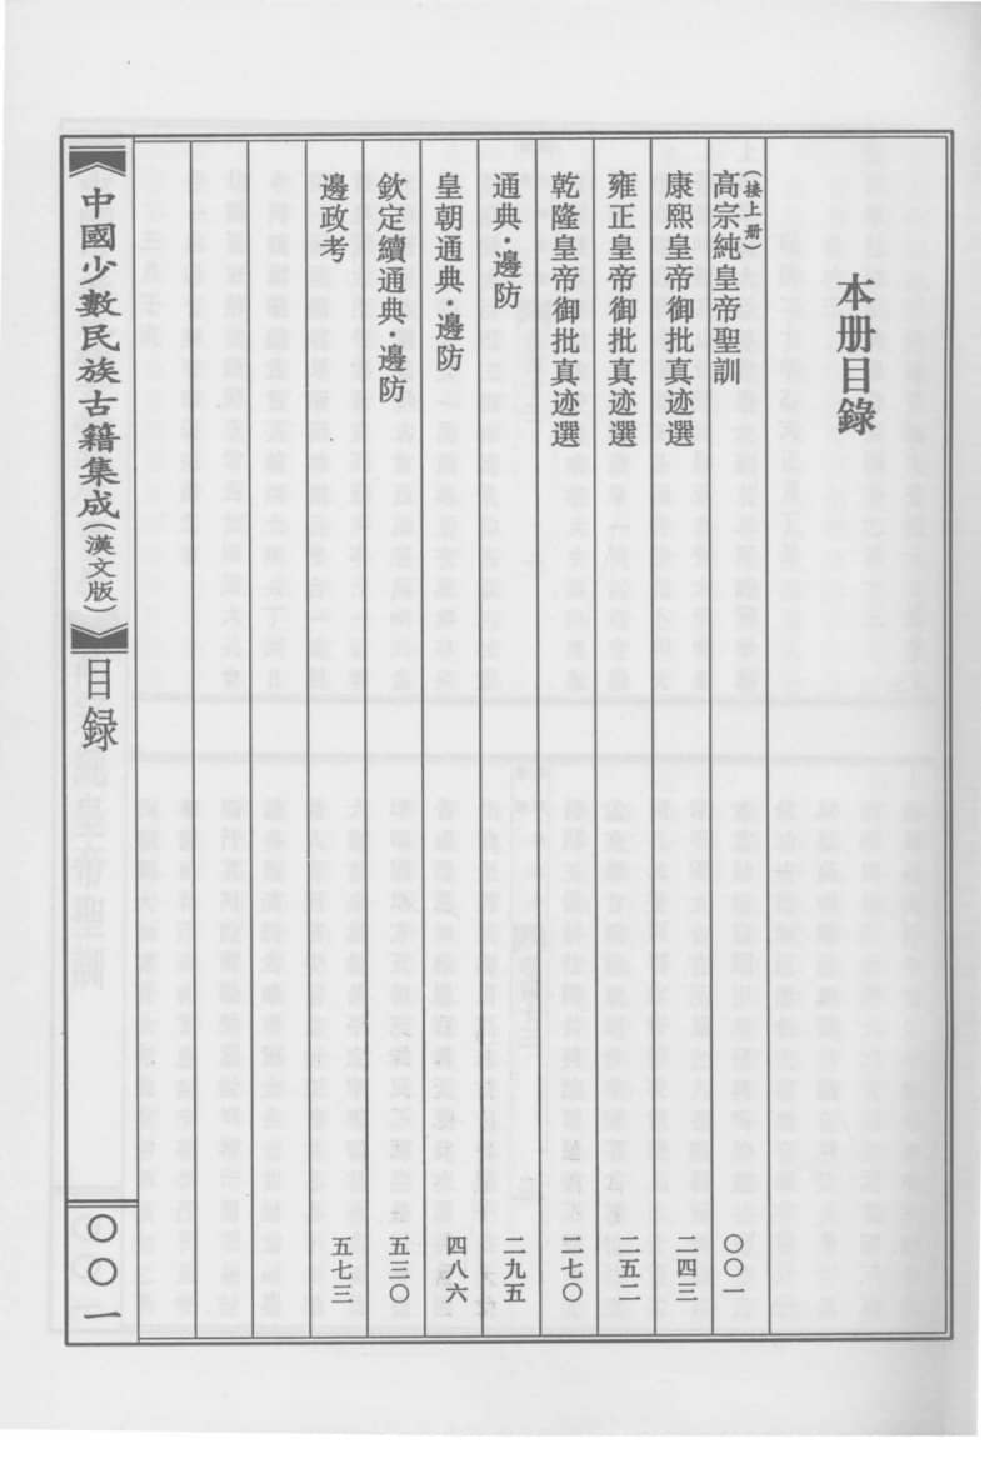 本册目錄
(接上册)
高宗純皇帝聖訓 〇〇一
康熙皇帝御批真迹選 二四三
雍正皇帝御批真迹選 二五二
乾隆皇帝御批真迹選 二七〇
通典·邊防 二九五
皇朝通典·邊防 四八六
欽定續通典·邊防 五三〇
邊政考 五七三
中國少數民族古籍集成(漢文版)
目録
〇〇一